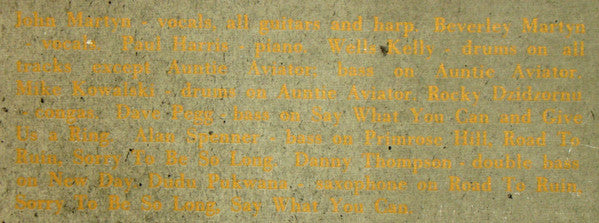 John Martyn - vocals, all guitars and harp. Beverley Martyn
- vocals. Paul Harris - piano. Wells Kelly - drums on all
tracks except Auntie Aviator; bass on Auntie Aviator.
Mike Kowalski - drums on Auntie Aviator. Rocky Dzidzornu
- congas. Dave Pegg - bass on Say What You Can and Give
Us a Ring. Alan Spenner - bass on Primrose Hill, Road To
Ruin, Sorry To Be So Long. Danny Thompson - double bass
on New Day. Dudu Pukwana - saxophone on Road To Ruin,
Sorry To Be So Long, Say What You Can.